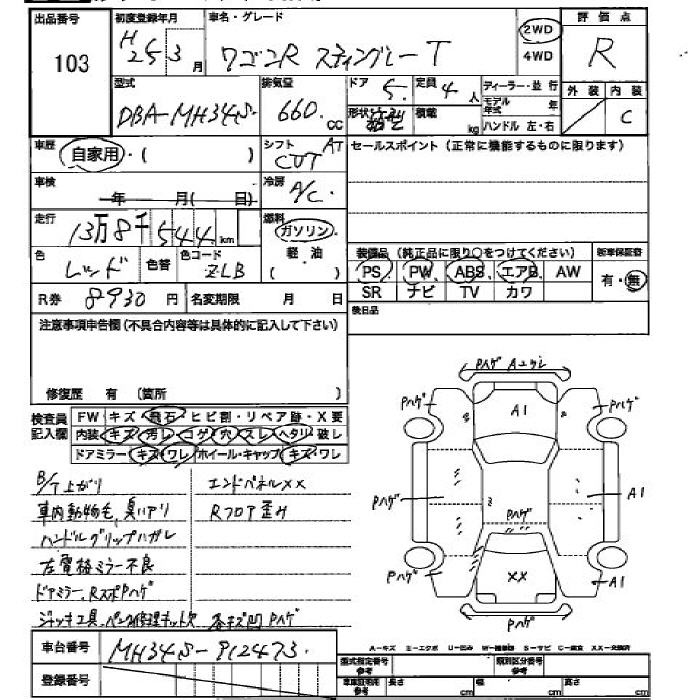 出品番号 初度登録年月 車名・グレード 評価点
103 H25 3月 ワゴンR スティングレー T 2WD 4WD R
型式 DBA-MH34S 排気量 660 cc ドア 5 定員 4人 ディーラー・並行 外装 内装
形状 積載 kg モデル年式 年 ハンドル 左・右 C
車歴 自家用・( ) シフト AT CVT セールスポイント(正常に機能するものに限ります)
車検 年 月(日) 冷房 A/C
走行 13万8千544km 燃料 ガソリン 軽油
色 レッド 色替 色コード ZLB 装備品(純正品に限り○をつけてください) 新車保証書
PS PW ABS エアB AW 有・無
R券 8930円 名変期限 月 日 SR ナビ TV カワ
注意事項申告欄(不具合内容等は具体的に記入して下さい) 後日品
修復歴 有(箇所 )
検査員記入欄 FW・キズ・飛石・ヒビ割・リペア跡・X要
内装・キズ・汚レ・コゲ・穴・スレ・ヘタリ・破レ
ドアミラー・キズ・ワレ ホイール・キャップ・キズ・ワレ
B/T上がり エンドパネルXX
車内動物毛、臭いアリ Rフロア歪み
ハンドルグリップハガレ
左電格ミラー不良
ドアミラー、RスポPハゲ
ジャッキ工具、パンク修理キット欠 各キズ凹Pハゲ
Pハゲ Aエグレ
Pハゲ A1 Pハゲ
Pハゲ A1
Pハゲ
Pハゲ XX A1
Pハゲ
車台番号 MH34S-912473
登録番号
A-キズ E-エクボ U-凹み W-補修跡 S-サビ C-腐食 XX-交換済
型式指定番号 参考 類別区分番号 参考
車庫証明用 参考 長さ cm 幅 cm 高さ cm